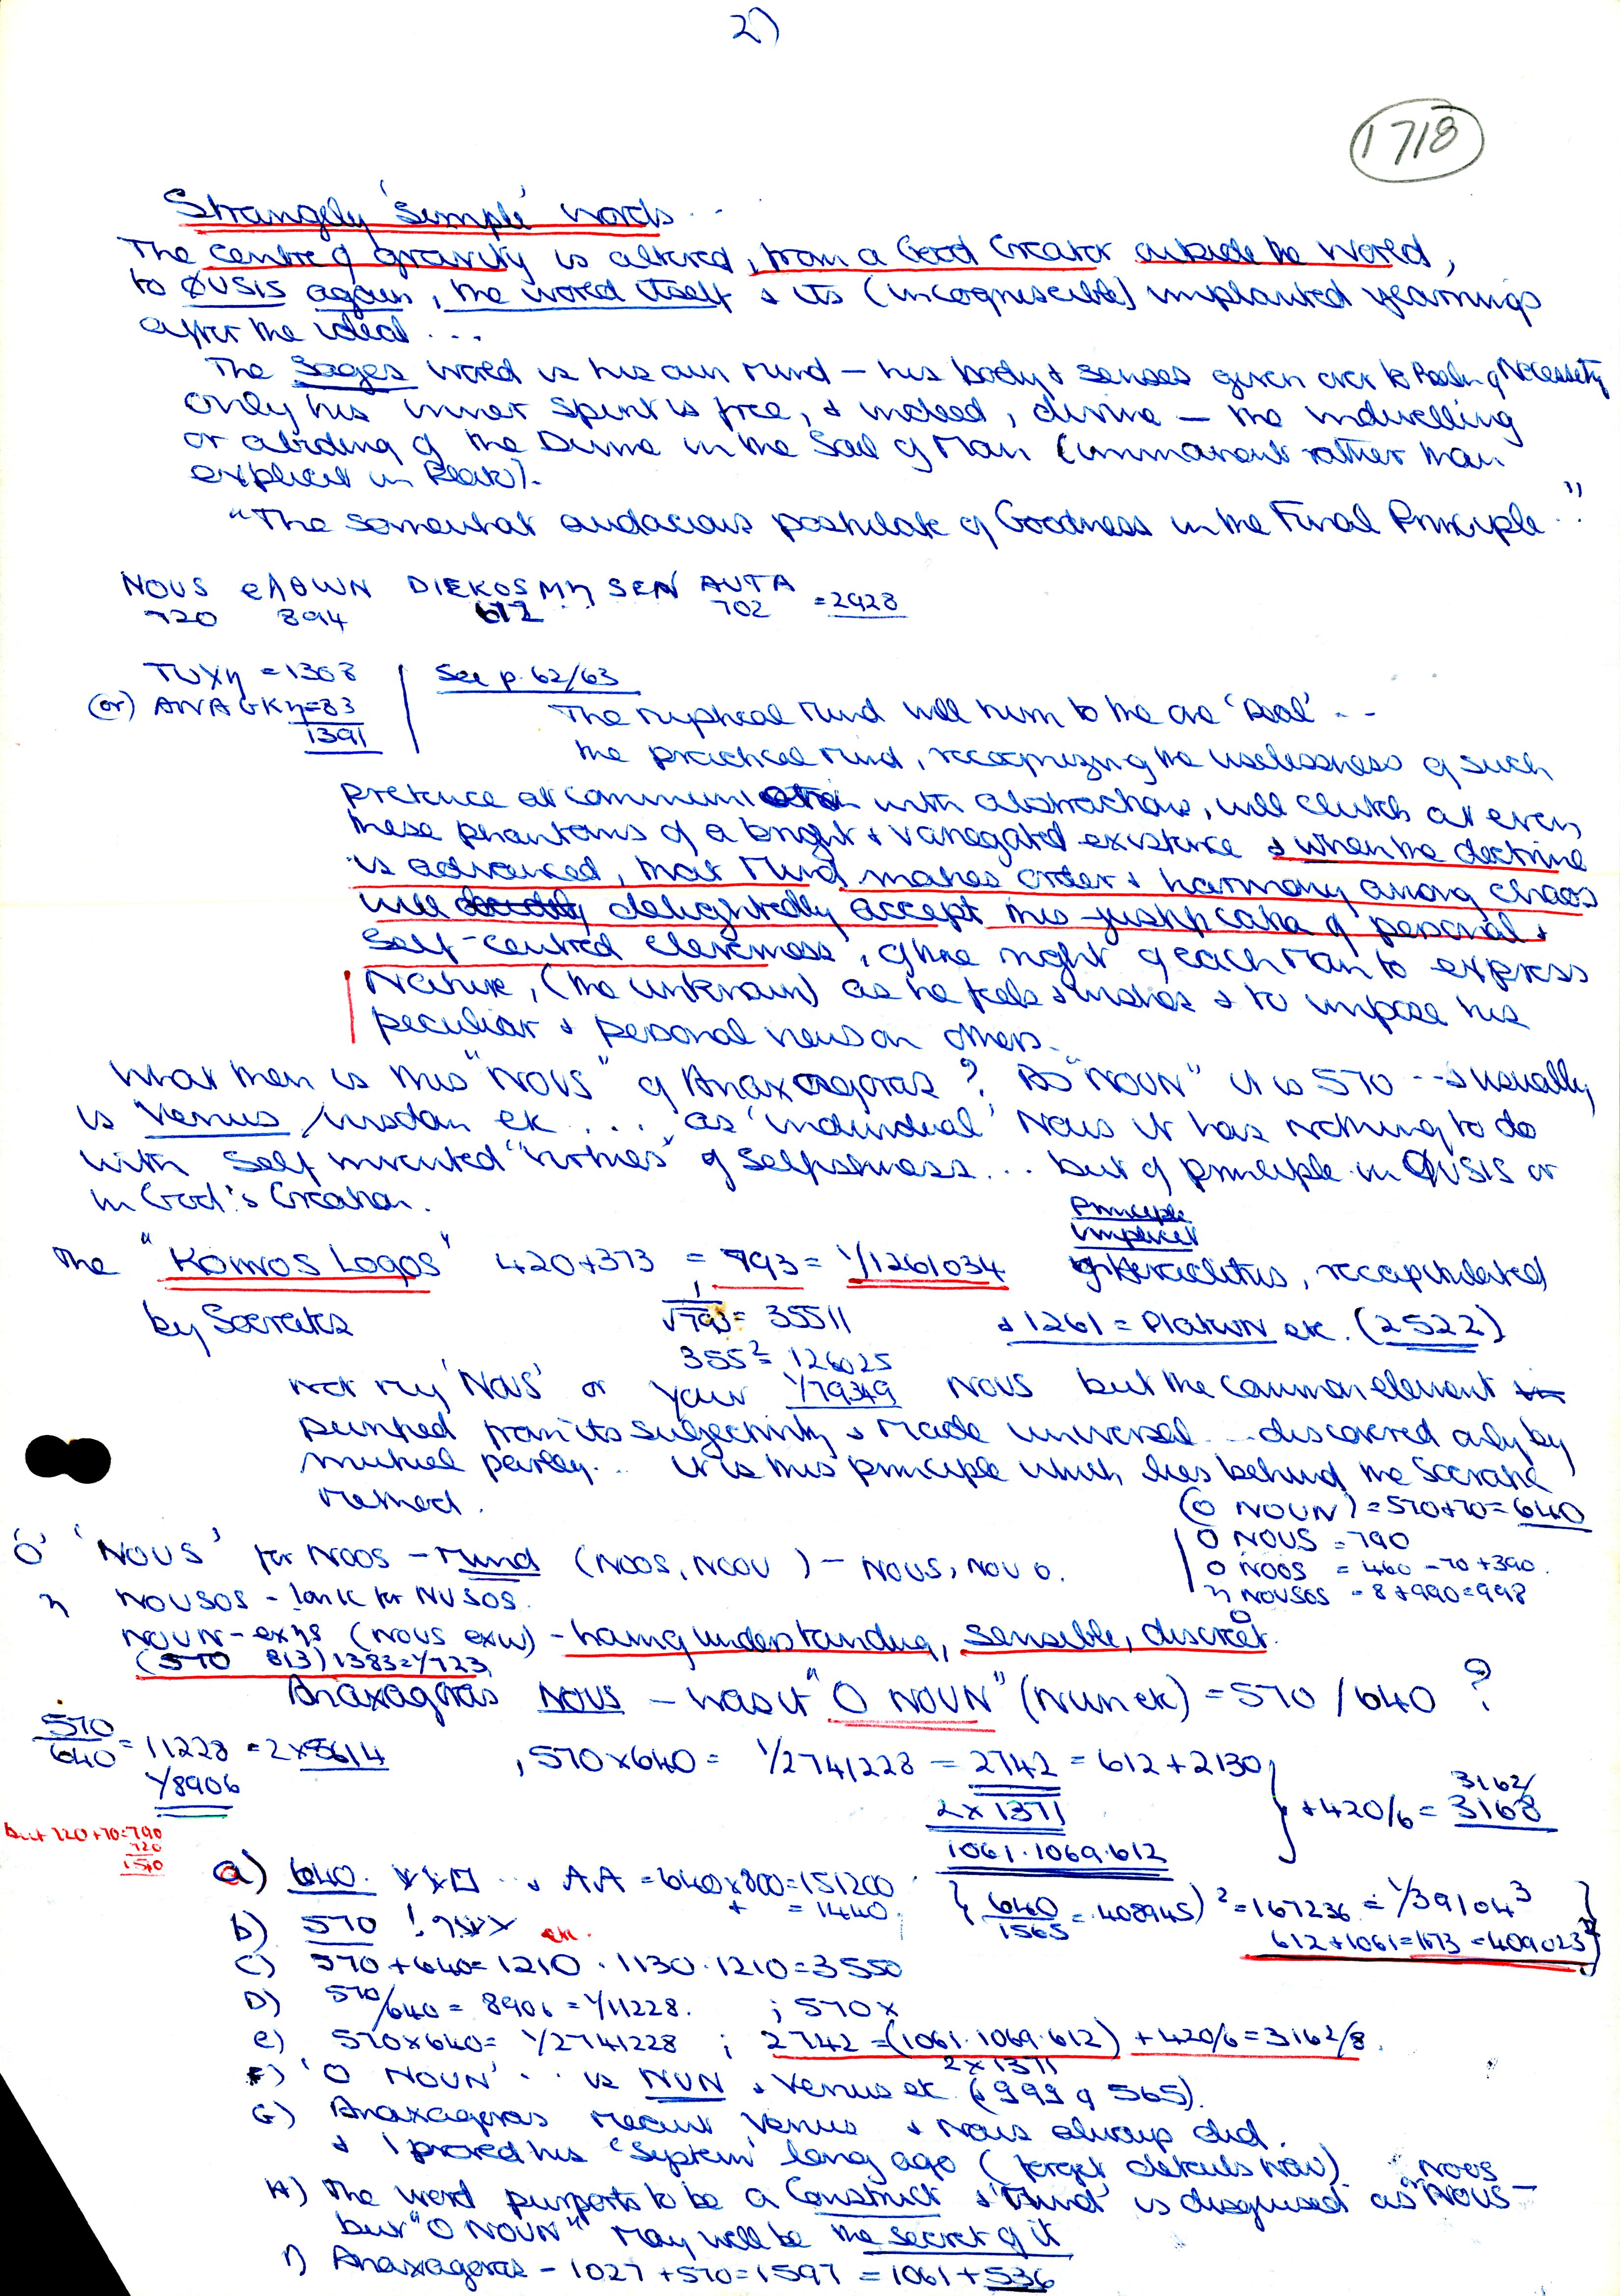 2)
1718
Strangely 'simple' words ..
The centre of gravity is altered, from a Good Creator outside the World,
to ØUSIS again, the world itself & its (incogniscible) implanted yearnings
after the ideal ...
The Sages world is his own mind – his body & senses given over to Necessity
only his inner spirit is free, & indeed, divine – the indwelling
or abiding of the Divine in the Soul of Man (immanent rather than
explicit in Plato).
"The somewhat audacious postulate of Goodness in the Final Principle.."
NOUS elθWN DIEKOSMη SEN AUTA
720 894 612 702 =2928
TUXη = 1308
(or) ANAGKη=83
1391
See p. 62/63
The mystical mind will turn to the one 'Real' ..
the practical mind, recognizing the uselessness of such
pretence at communication with abstractions, will clutch at even
these phantoms of a bright & variegated existence & when the doctrine
is advanced, that Mind makes order & harmony among chaos
will delightedly accept this justification of personal &
self-centred cleverness, of the right of each Man to express
Nature, (the unknown) as he feels & wishes & to impose his
peculiar & personal views on others.
What then is this "NOUS" of Anaxagoras? As "NOUN" it is 570 -- & usually
is Venus, wisdom etc ... as 'individual' Nous it has nothing to do
with self invented "virtues" of selfishness... but of principle in ØUSIS or
in God's Creation.
Principle
implicit
The "Koinos Logos" 420+373 = 793 = 1/1261034 of Heraclitus, recapitulated
by Socrates 1/√793 = 35511 & 1261 = PlatWN etc. (2522)
355² = 126025
not my 'NOUS' or your 1/79349 NOUS but the common element
purified from its subjectivity & made universal ... discovered only by
mutual parley... it is this principle which lies behind the Socratic
method.
(O NOUN) = 570+70 = 640
O NOUS = 790
O NOOS = 460 – 70 + 390.
η NOUSOS = 8 + 990 = 998
'O' 'NOUS' for NOOS – Mind (NOOS, NOOU) – NOUS, NOU O.
η NOUSOS – Ionic for NUSOS.
NOUN-exηs (NOUS exW) – having understanding, sensible, discreet.
(570 813) 1383 = 1/723
Anaxagoras NOUS – was it "O NOUN" (Nun etc) = 570/640 ?
570/640 = 11228 = 2 x 5614
1/8906
, 570 x 640 = 1/2741228 = 2742 = 612 + 2130
2 x 1371
1061 . 1069 . 612
+ 420/6 = 3162/3168
but 720+70=790
a) 640. & AA = 640 x 800 = 151200
+ = 1440.
{ (640/1565 = .408945)² = 167236 = 1/39104³
612 + 1061 = 1673 = 409023 }
b) 570 etc.
c) 570 + 640 = 1210 . 1130 . 1210 = 3550
D) 570/640 = 8906 = 1/11228. ; 570 x
e) 570 x 640 = 1/2741228 ; 2742 = (1061 . 1069 . 612) + 420/6 = 3162/8.
2 x 1371
F) 'O NOUN' .. is NUN & Venus etc (& 999 of 565).
G) Anaxagoras meant Venus & Nous always did.
& I proved his 'System' long ago (forget details now)
H) The word purports to be a Construct & 'Mind' is disguised as NOOS NOUS –
but "O NOUN" may well be the secret of it
I) Anaxagoras – 1027 + 570 = 1597 = 1061 + 536